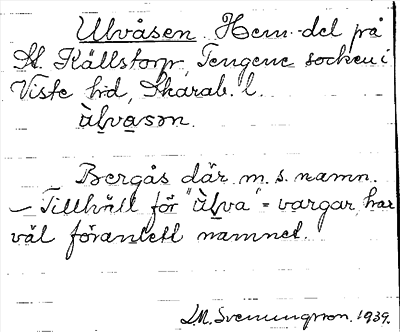 Ulvåsen. Hem-del på
St. Källstorp, Tengene socken i
Viste hd, Skarab. l.
ùlvasən.
Bergås där m. s. namn.
— Tillhåll för "ùlva" = vargar, har
väl föranlett namnet.
L.M. Svenungsson. 1939.